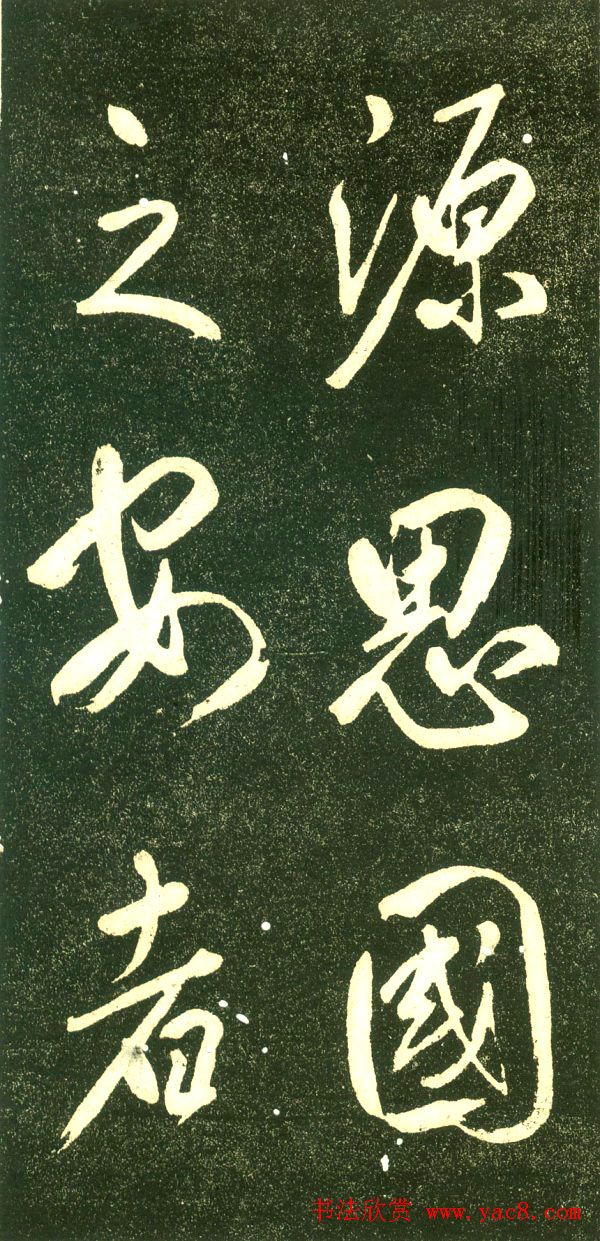 源思國
之安者
书法欣赏 www.yac8.com